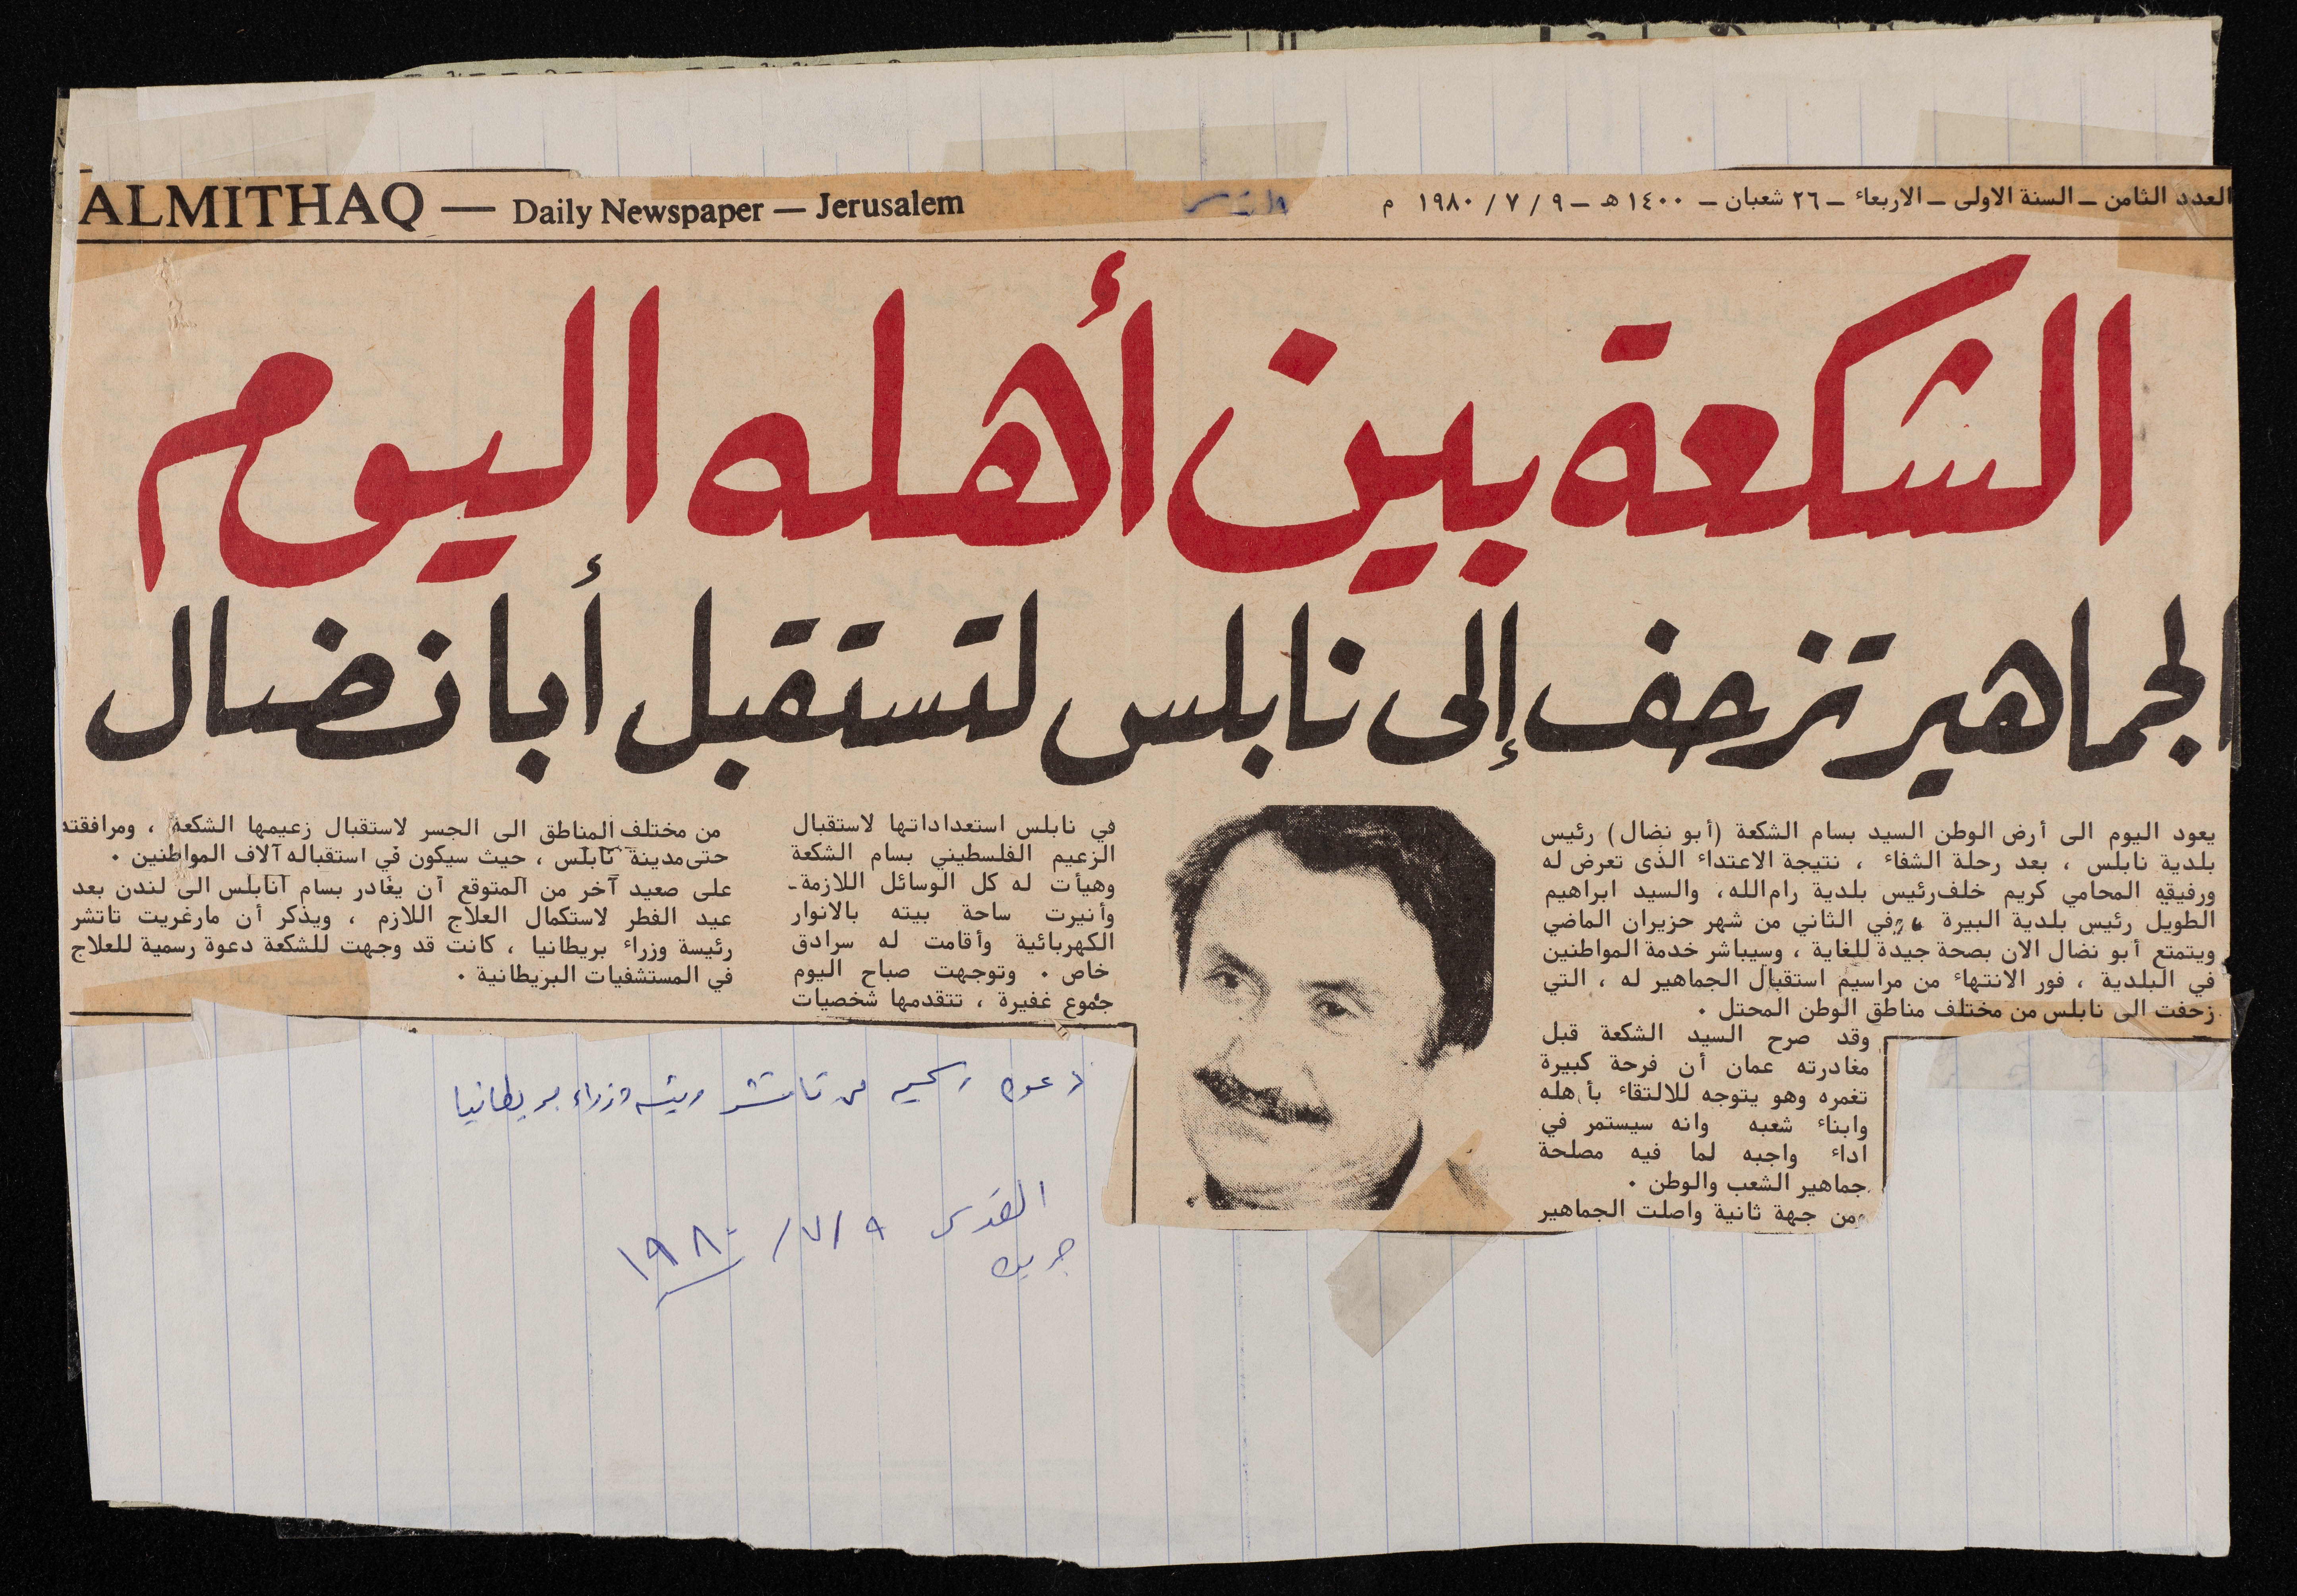 العدد الثامن ـ السنة الاولى ـ الاربعاء ـ ٢٦ شعبان ـ ١٤٠٠ هـ ـ ٩ / ٧ / ١٩٨٠ م
ALMITHAQ — Daily Newspaper — Jerusalem
الشكعة بين أهله اليوم
الجماهير تزحف إلى نابلس لتستقبل أبا نضال
يعود اليوم الى أرض الوطن السيد بسام الشكعة (أبو نضال) رئيس
بلدية نابلس ، بعد رحلة الشفاء ، نتيجة الاعتداء الذى تعرض له
ورفيقيه المحامي كريم خلف رئيس بلدية رام الله، والسيد ابراهيم
الطويل رئيس بلدية البيرة ،، في الثاني من شهر حزيران الماضي
ويتمتع أبو نضال الان بصحة جيدة للغاية ، وسيباشر خدمة المواطنين
في البلدية ، فور الانتهاء من مراسيم استقبال الجماهير له ، التي
زحفت الى نابلس من مختلف مناطق الوطن المحتل .
وقد صرح السيد الشكعة قبل
مغادرته عمان أن فرحة كبيرة
تغمره وهو يتوجه للالتقاء بأهله
وابناء شعبه وانه سيستمر في
اداء واجبه لما فيه مصلحة
جماهير الشعب والوطن .
ومن جهة ثانية واصلت الجماهير
في نابلس استعداداتها لاستقبال
الزعيم الفلسطيني بسام الشكعة
وهيأت له كل الوسائل اللازمة ـ
وأنيرت ساحة بيته بالانوار
الكهربائية وأقامت له سرادق
خاص . وتوجهت صباح اليوم
جموع غفيرة ، تتقدمها شخصيات
من مختلف المناطق الى الجسر لاستقبال زعيمها الشكعة ، ومرافقته
حتى مدينة نابلس ، حيث سيكون في استقباله آلاف المواطنين .
على صعيد آخر من المتوقع أن يغادر بسام نابلس الى لندن بعد
عيد الفطر لاستكمال العلاج اللازم ، ويذكر أن مارغريت تاتشر
رئيسة وزراء بريطانيا ، كانت قد وجهت للشكعة دعوة رسمية للعلاج
في المستشفيات البريطانية .
دعوه رسميه من تاتشر رئيسه وزراء بريطانيا
القدس ٩ / ٧ / ١٩٨٠
جريده